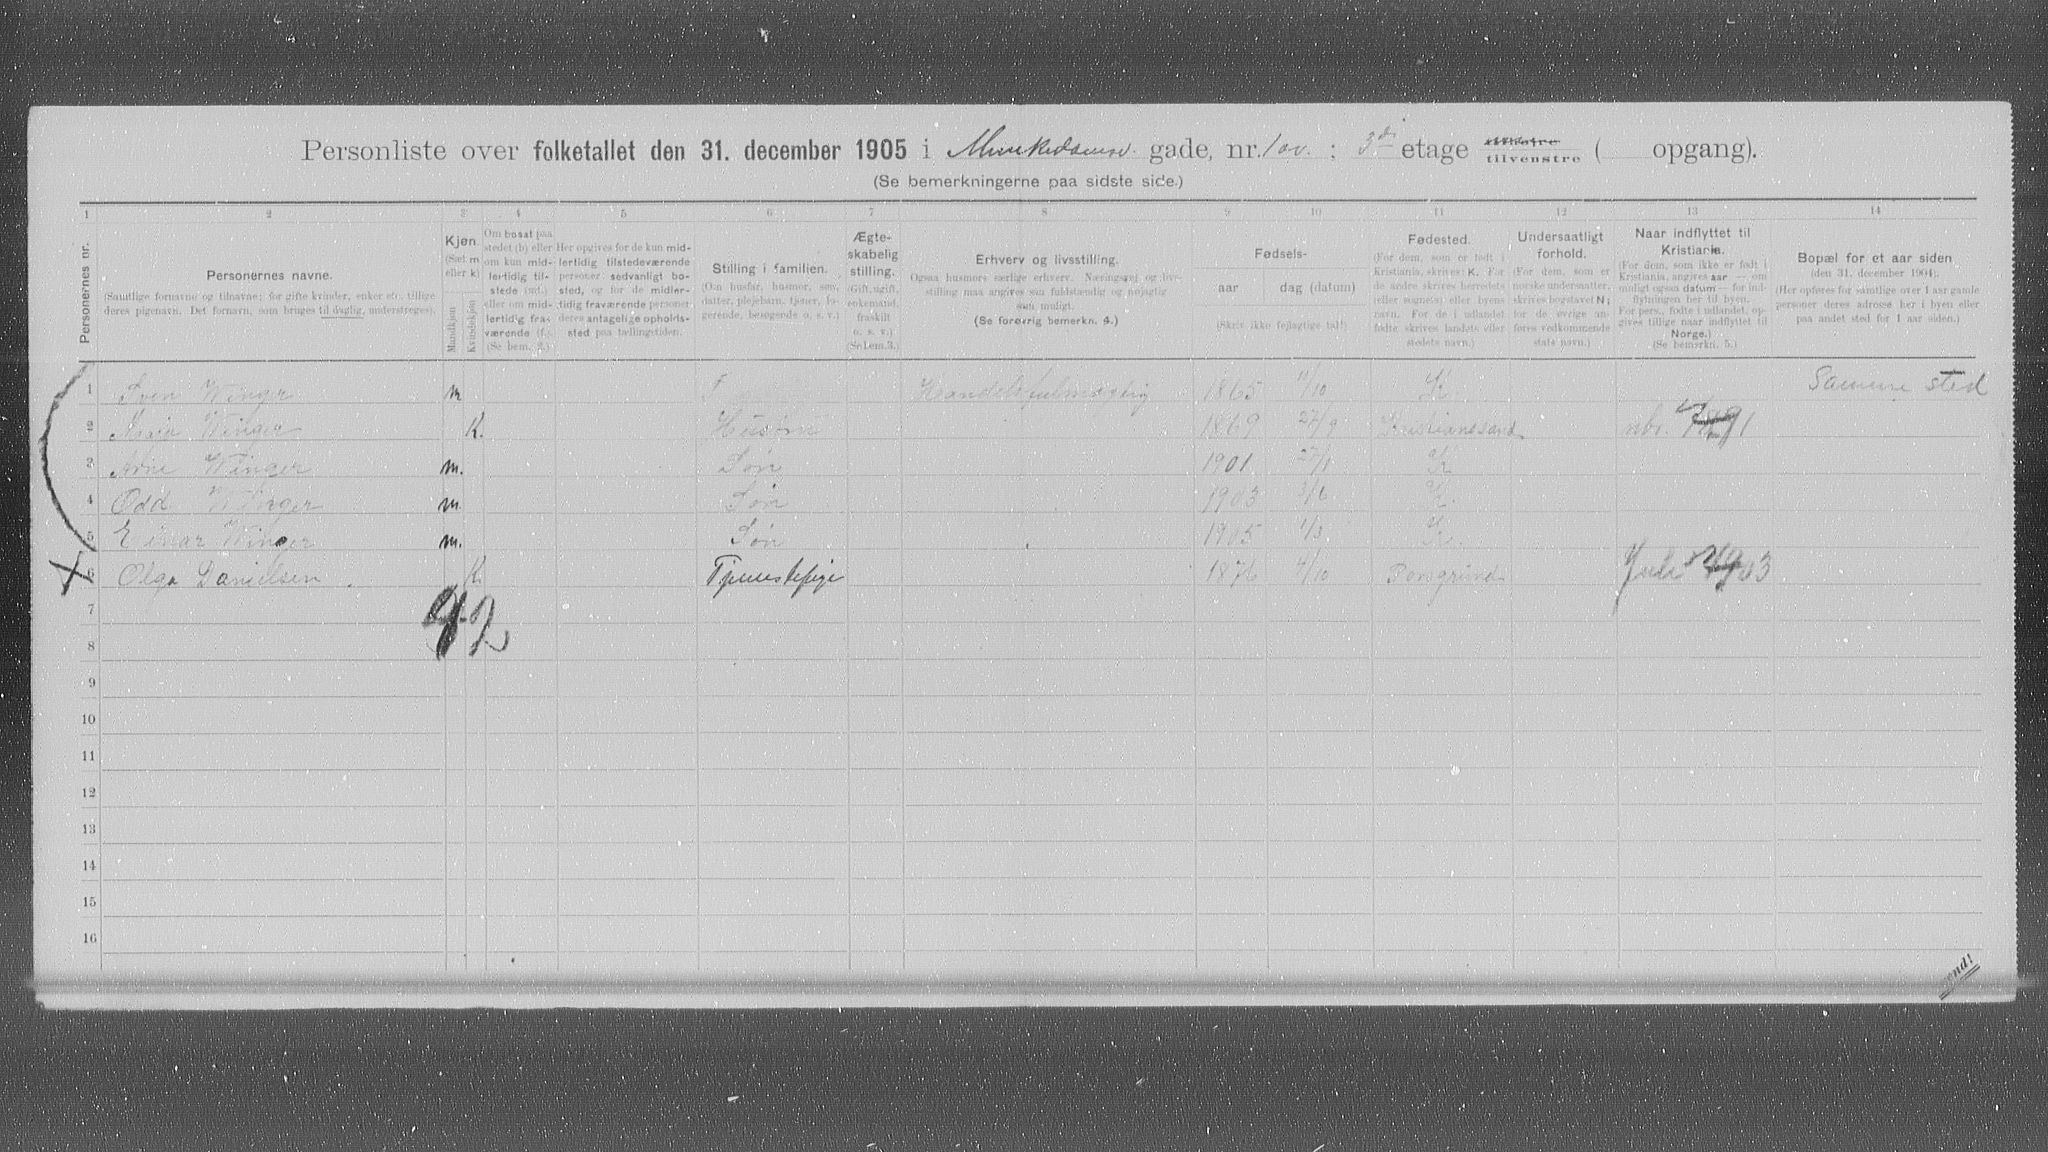 Personliste over folketallet den 31. december 1905 i Munkedamsv. gade, nr. 10 v. ; 3di etage tilhøire tilvenstre ( opgang).
(Se bemerkningerne paa sidste side.)
1 2 3 4 5 6 7 8 9 10 11 12 13 14
Personernes nr.
Personernes navne.
(Samtlige fornavne og tilnavne; for gifte kvinder, enker etc. tillige deres pigenavn. Det fornavn, som bruges til daglig, understreges).
Kjøn.
(Sæt m eller k)
Mandkjøn
Kvindekjøn
Om bosat paa stedet (b) eller om kun midlertidig tilstede (mt.) eller om midlertidig fraværende (f.). (Se bem. 2.)
Her opgives for de kun midlertidig tilstedeværende personer sedvanlig bosted, og for de midlertidig fraværende personer deres antagelige opholdssted paa tællingstiden.
Stilling i familien.
(Om husfar, husmor, søn, datter, plejebarn, tjener, logerende, besøgende o. s. v.)
Ægteskabelig stilling.
(Gift, ugift, enkemand, fraskilt o. s. v.) (Se bem. 3.)
Erhverv og livsstilling.
Ogsaa husmors særlige erhverv. Næringsvej og livsstilling maa angives saa fuldstændig og nøjagtig som muligt.
(Se forøvrig bemerkn. 4.)
Fødsels-
aar dag (datum)
(Skriv ikke fejlagtige tal!)
Fødested.
(For dem, som er født i Kristiania, skrives: K. For de andre skrives herredets (eller sognets) eller byens navn. For de i udlandet fødte skrives landets eller stedets navn.)
Undersaatligt forhold.
(For dem, som er norske undersaatter, skrives bogstavet N; for de øvrige anføres vedkommende stats navn.)
Naar indflyttet til Kristiania.
(For dem, som ikke er født i Kristiania, angives aar — om muligt ogsaa datum — for indflytningen her til byen. For pers., fødte i udlandet, opgives tillige naar indflyttet til Norge.)
(Se bemerkn. 5.)
Bopæl for et aar siden
(den 31. december 1904).
(Her opføres for samtlige over 1 aar gamle personer deres adresse her i byen eller paa andet sted for 1 aar siden.)
1 Sven Winger m F Handelsfulmægtig 1865 11/10 K. Samme sted
2 Maia Winger K. Husm 1869 27/9 Kristianssand 1891
3 Arne Winger m. Søn 1901 27/1 K
4 Odd Winger m. Søn 1903 3/6 K.
5 Einar Winger m. Søn 1905 1/3 K.
6 Olga Danielsen K. Tjenestepige 1876 4/10 Porsgrund Juli 1903
7 4 2
8
9
10
11
12
13
14
15
16
Vend!